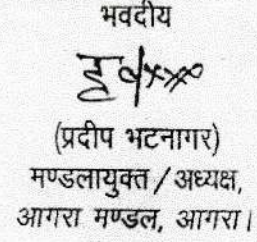 भवदीय
(प्रदीप भटनागर)
मण्डलायुक्त / अध्यक्ष,
आगरा मण्डल, आगरा।